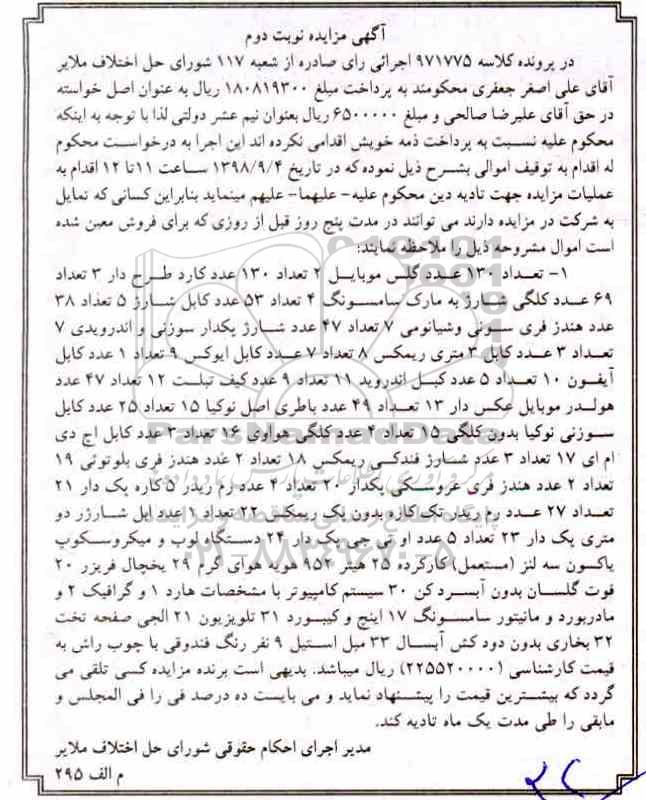 آگهی مزایده نوبت دوم
در پرونده کلاسه ۹۷۱۷۷۵ اجرائی رای صادره از شعبه ۱۱۷ شورای حل اختلاف ملایر
آقای علی اصغر جعفری محکومند به پرداخت مبلغ ۱۸۰۸۱۹۳۰۰ ریال به عنوان اصل خواسته
در حق آقای علیرضا صالحی و مبلغ ۶۵۰۰۰۰۰ ریال بعنوان نیم عشر دولتی لذا با توجه به اینکه
محکوم علیه نسبت به پرداخت ذمه خویش اقدامی نکرده اند این اجرا به درخواست محکوم
له اقدام به توقیف اموالی بشرح ذیل نموده که در تاریخ ۱۳۹۸/۹/۴ ساعت ۱۱ تا ۱۲ اقدام به
عملیات مزایده جهت تادیه دین محکوم علیه- علیهما- علیهم مینماید بنابراین کسانی که تمایل
به شرکت در مزایده دارند می توانند در مدت پنج روز قبل از روزی که برای فروش معین شده
است اموال مشروحه ذیل را ملاحظه نمایند:
۱- تعداد ۱۳۰ عدد گلس موبایل ۲ تعداد ۱۳۰ عدد کارد طرح دار ۳ تعداد
۶۹ عدد کلگی شارژ به مارک سامسونگ ۴ تعداد ۵۳ عدد کابل شارژ ۵ تعداد ۳۸
عدد هندز فری سونی وشیائومی ۷ تعداد ۴۷ عدد شارژ یکدار سوزنی و اندرویدی ۷
تعداد ۳ عدد کابل ۳ متری ریمکس ۸ تعداد ۷ عدد کابل ایوکس ۹ تعداد ۱ عدد کابل
آیفون ۱۰ تعداد ۵ عدد کیبل اندروید ۱۱ تعداد ۹ عدد کیف تبلت ۱۲ تعداد ۴۷ عدد
هولدر موبایل عکس دار ۱۳ تعداد ۴۹ عدد باطری اصل نوکیا ۱۵ تعداد ۲۵ عدد کابل
سوزنی نوکیا بدون کلگی ۱۵ تعداد ۴ عدد کلگی هواوی ۱۶ تعداد ۳ عدد کابل اچ دی
ام ای ۱۷ تعداد ۳ عدد شارژ فندکی ریمکس ۱۸ تعداد ۲ عدد هندز فری بلوتوثی ۱۹
تعداد ۲ عدد هندز فری عروسکی پکدار ۲۰ تعداد ۴ عدد رم ریدر ۵ کاره پک دار ۲۱
تعداد ۲۷ عدد رم ریدر تک کاره بدون پک ریمکس ۲۲ تعداد ۱ عدد اپل شارژر دو
متری پک دار ۲۳ تعداد ۵ عدد او تی جی پک دار ۲۴ دستگاه لوپ و میکروسکوپ
یاکسون سه لنز (مستعمل) کارکرده ۲۵ هیتر ۹۵۲ هویه هوای گرم ۲۹ یخچال فریزر ۲۰
فوت گلسان بدون آبسردکن ۳۰ سیستم کامپیوتر با مشخصات هارد ۱ و گرافیک ۲ و
مادربورد و مانیتور سامسونگ ۱۷ اینچ و کیبورد ۳۱ تلویزیون ۲۱ الجی صفحه تخت
۳۲ بخاری بدون دود کش آبسال ۳۳ مبل استیل ۹ نفر رنگ فندوقی با چوب راش به
قیمت کارشناسی (۲۲۵۵۲۰۰۰۰) ریال میباشد. بدیهی است برنده مزایده کسی تلقی می
گردد که بیشترین قیمت را پیشنهاد نماید و می بایست ده درصد فی را فی المجلس و
مابقی را طی مدت یک ماه تادیه کند.
مدیر اجرای احکام حقوقی شورای حل اختلاف ملایر
م الف ۲۹۵
ParsNamadData
پایگاه اطلاع رسانی مناقصه و مزایده
۰۲۱-۸۸۳۴۹۶۷۰-۵